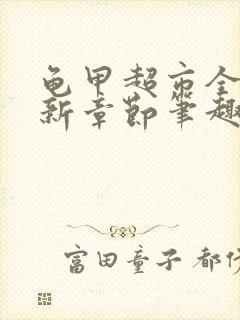 龟甲超市全
新章節筆趣
富田童子 都